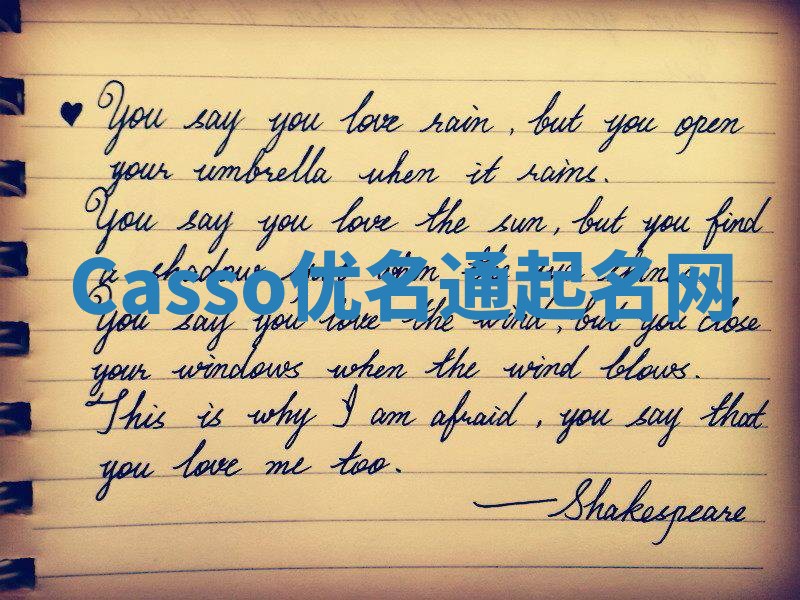 ♥ You say you love rain, but you open
your umbrella when it rains.
You say you love the sun, but you find
a shadow when the sun shines.
Casso优名通起名网
You say you love the wind, but you close
your windows when the wind blows.
This is why I am afraid, you say that
you love me too.
—Shakespeare